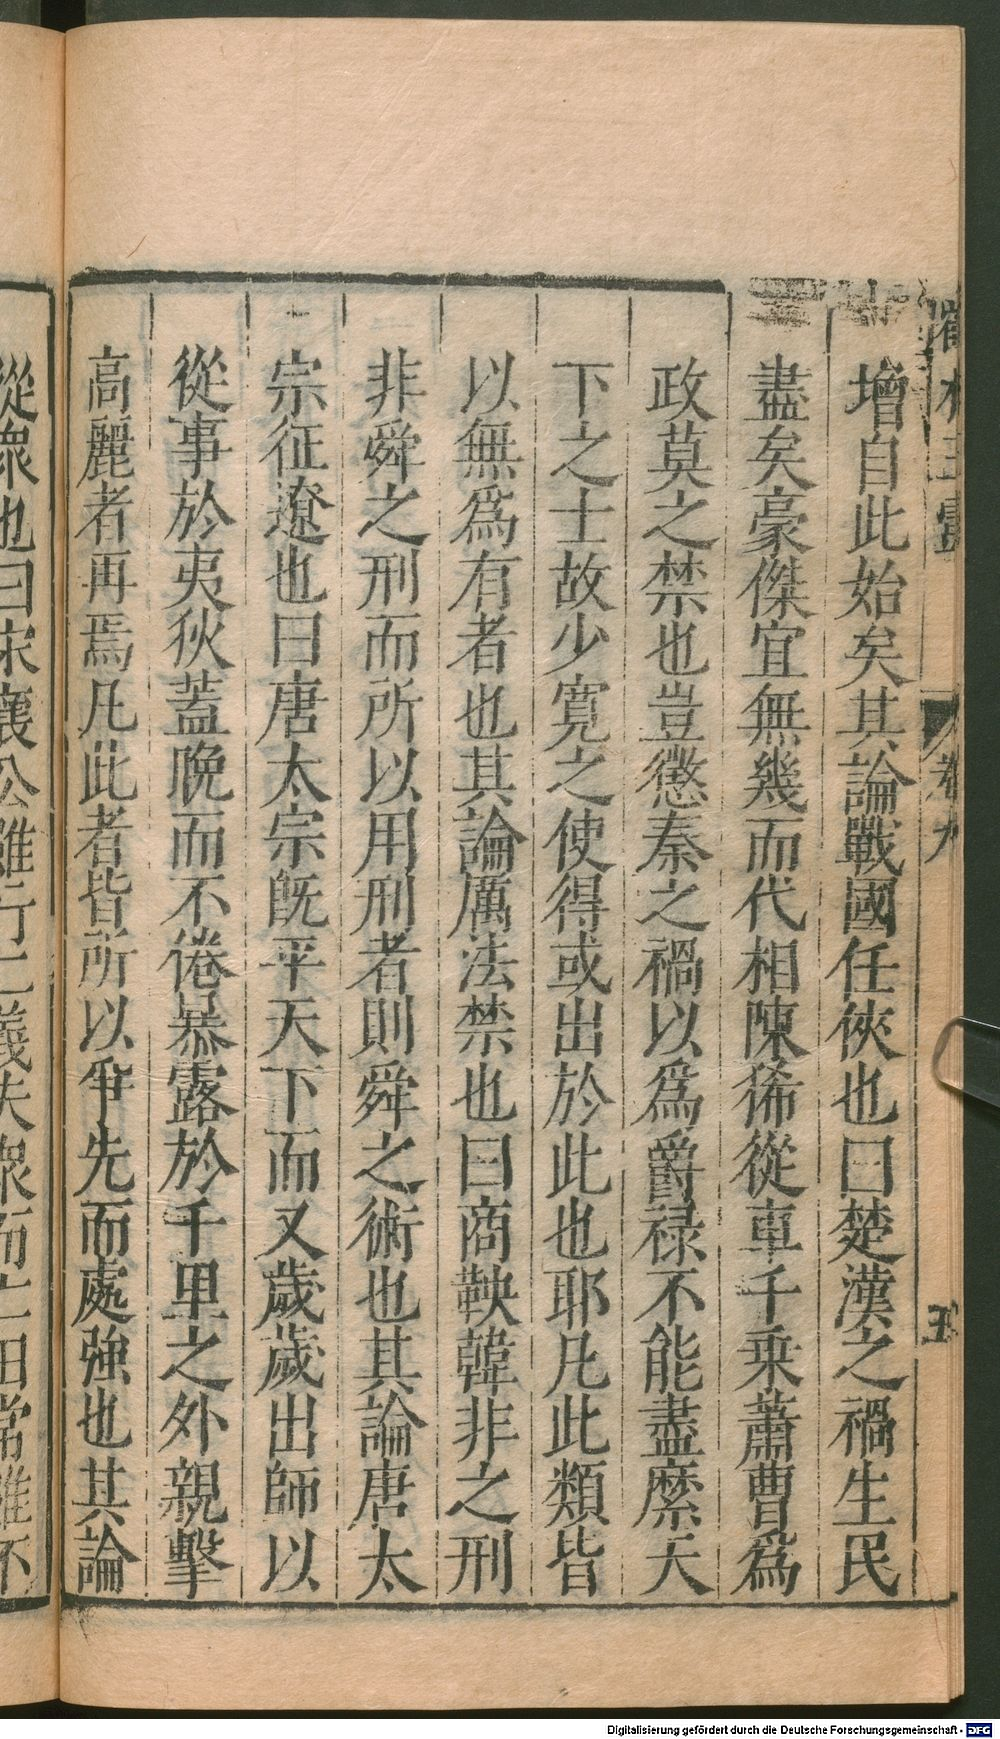 增自此始矣其論戰國任俠也曰楚漢之禍生民
盡矣豪傑宜無幾而代相陳狶從車千乘蕭曹爲
政莫之禁也豈懲秦之禍以爲爵祿不能盡縻天
下之士故少寬之使得或出於此也耶凡此類皆
以無爲有者也其論厲法禁也曰商鞅韓非之刑
非舜之刑而所以用刑者則舜之術也其論唐太
宗征遼也曰唐太宗既平天下而又歲歲出師以
從事於夷狄蓋晚而不倦暴露於千里之外親擊
高麗者再焉凡此者皆所以爭先而處強也其論
從衆也曰宋襄公雖行仁義失衆而亡田常雖不
卷九
五
Digitalisierung gefördert durch die Deutsche Forschungsgemeinschaft - DFG